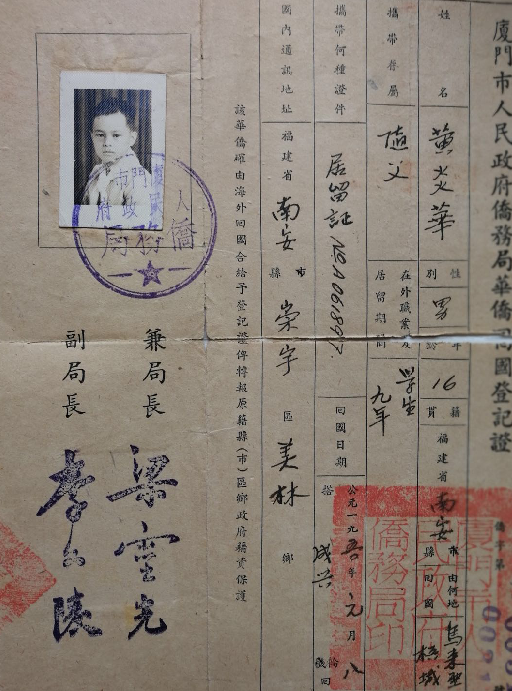 廈門市人民政府僑務局華僑回國登記證
僑字第 號
姓名 黃炎華 性別 男 年齡 16 籍貫 福建省 南安 市縣 由何地回國 馬來亞 檳城
攜帶眷屬 隨父 在外職業及居留期間 學生 九年
攜帶何種證件 居留証 回國日期 公元一九五 年 元 月 八
搭 成芸
國內通訊地址 福建省 南安 市縣 崇宇 區 美林 鄉
該華僑確由海外回國合給予登記證俾持報原籍縣(市)區鄉政府務責保護
兼局長 梁靈光
副局長
廈門市人民政府僑務局
廈門市人民政府僑務局印